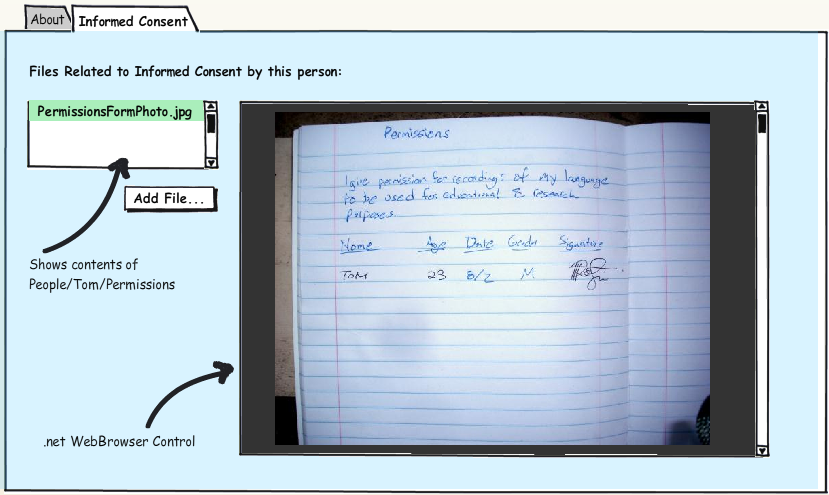 About
Informed Consent
Files Related to Informed Consent by this person:
PermissionsFormPhoto.jpg
Add File...
Shows contents of
People/Tom/Permissions
.net WebBrowser Control
Permissions
I give permission for recordings of my language
to be used for educational & research
purposes
Name Age Date Gender Signature
Tom 23 8/2 M.